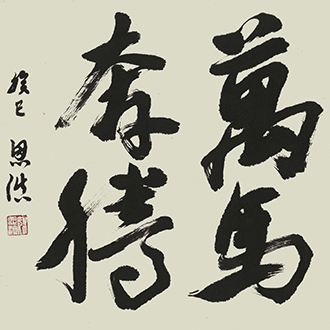 萬馬
奔騰
癸巳 恩浩